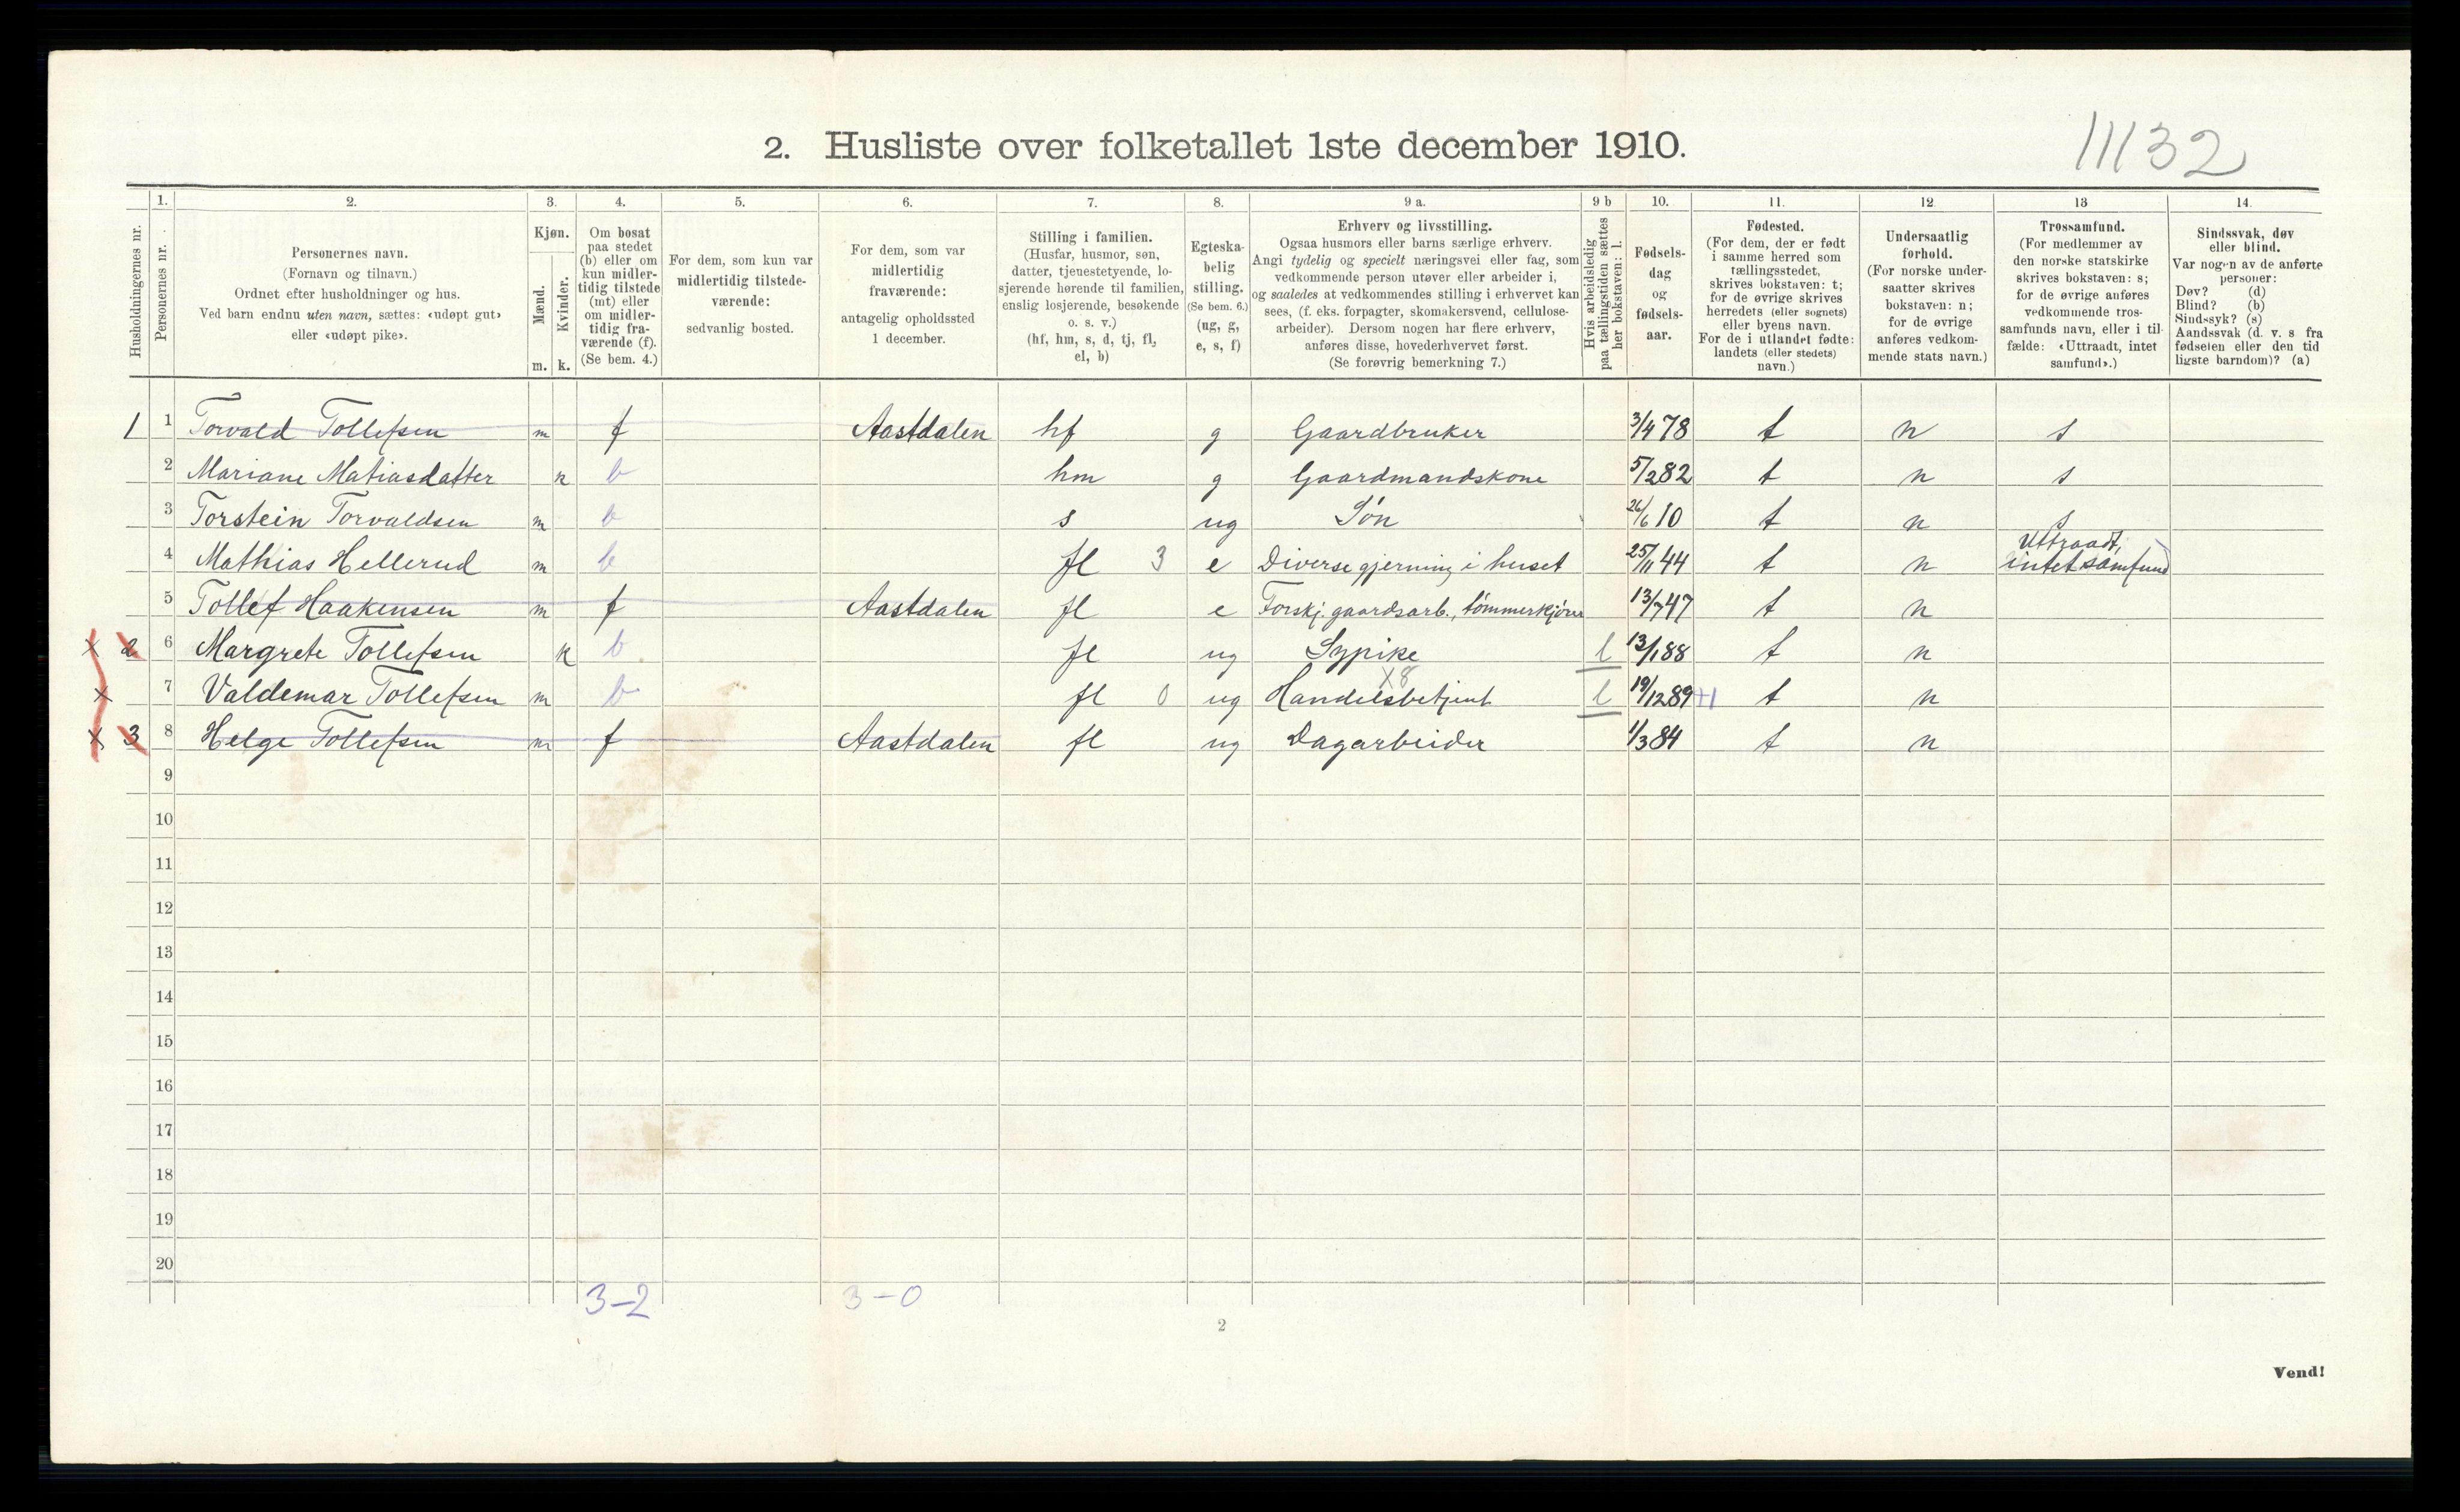 2. Husliste over folketallet 1ste december 1910.
11132
Husholdningernes nr.
1.
Personernes nr.
2.
Personernes navn.
(Fornavn og tilnavn.)
Ordnet efter husholdninger og hus.
Ved barn endnu uten navn, sættes: «udøpt gut»
eller «udøpt pike».
3.
Kjøn.
Mænd.
Kvinder.
m. k.
4.
Om bosat
paa stedet
(b) eller om
kun midler-
tidig tilstede
(mt) eller
om midler-
tidig fra-
værende (f).
(Se bem. 4.)
5.
For dem, som kun var
midlertidig tilstede-
værende:
sedvanlig bosted.
6.
For dem, som var
midlertidig
fraværende:
antagelig opholdssted
1 december.
7.
Stilling i familien.
(Husfar, husmor, søn,
datter, tjenestetyende, lo-
sjerende hørende til familien,
enslig losjerende, besøkende
o. s. v.)
(hf, hm, s, d, tj, fl,
el, b)
8.
Egteska-
belig
stilling.
(Se bem. 6.)
(ug, g,
e, s, f)
9 a.
Erhverv og livsstilling.
Ogsaa husmors eller barns særlige erhverv.
Angi tydelig og specielt næringsvei eller fag, som
vedkommende person utøver eller arbeider i,
og saaledes at vedkommendes stilling i erhvervet kan
sees, (f. eks. forpagter, skomakersvend, cellulose-
arbeider). Dersom nogen har flere erhverv,
anføres disse, hovederhvervet først.
(Se forøvrig bemerkning 7.)
9 b
Hvis arbeidsledig
paa tællingstiden sættes
her bokstaven: l.
10.
Fødsels-
dag
og
fødsels-
aar.
11.
Fødested.
(For dem, der er født
i samme herred som
tællingsstedet,
skrives bokstaven: t;
for de øvrige skrives
herredets (eller sognets)
eller byens navn.
For de i utlandet fødte:
landets (eller stedets)
navn.)
12.
Undersaatlig
forhold.
(For norske under-
saatter skrives
bokstaven: n;
for de øvrige
anføres vedkom-
mende stats navn.)
13
Trossamfund.
(For medlemmer av
den norske statskirke
skrives bokstaven: s;
for de øvrige anføres
vedkommende tros-
samfunds navn, eller i til-
fælde: «Uttraadt, intet
samfund».)
14.
Sindssvak, døv
eller blind.
Var nogen av de anførte
personer:
Døv? (d)
Blind? (b)
Sindssyk? (s)
Aandssvak (d. v. s fra
fødselen eller den tid
ligste barndom)? (a)
1 1 Torvald Tollefsen m f Aastdalen hf g Gaardbruker 3/4 78 t n s
2 Mariane Matiasdatter k b hm g Gaardmandskone 5/2 82 t n s
3 Torstein Torvaldsen m b s ug Søn 26/6 10 t n s
4 Mathias Hellerud m b fl 3 e Diverse gjerning i huset 25/11 44 t n Uttraadt, intet samfund
5 Tollef Haakensen m f Aastdalen fl e Forskj. gaardsarb., tømmerkjører 13/7 47 t n
x 2 6 Margrete Tollefsen k b fl ug Sypike l 13/1 88 t n
x 7 Valdemar Tollefsen m b fl 0 ug Handelsbetjent x8 l 19/12 89 +1 t n
x 3 8 Helge Tollefsen m f Aastdalen fl ug Dagarbeider 1/3 84 t n
9
10
11
12
13
14
15
16
17
18
19
20
3-2 3-0
2
Vend!